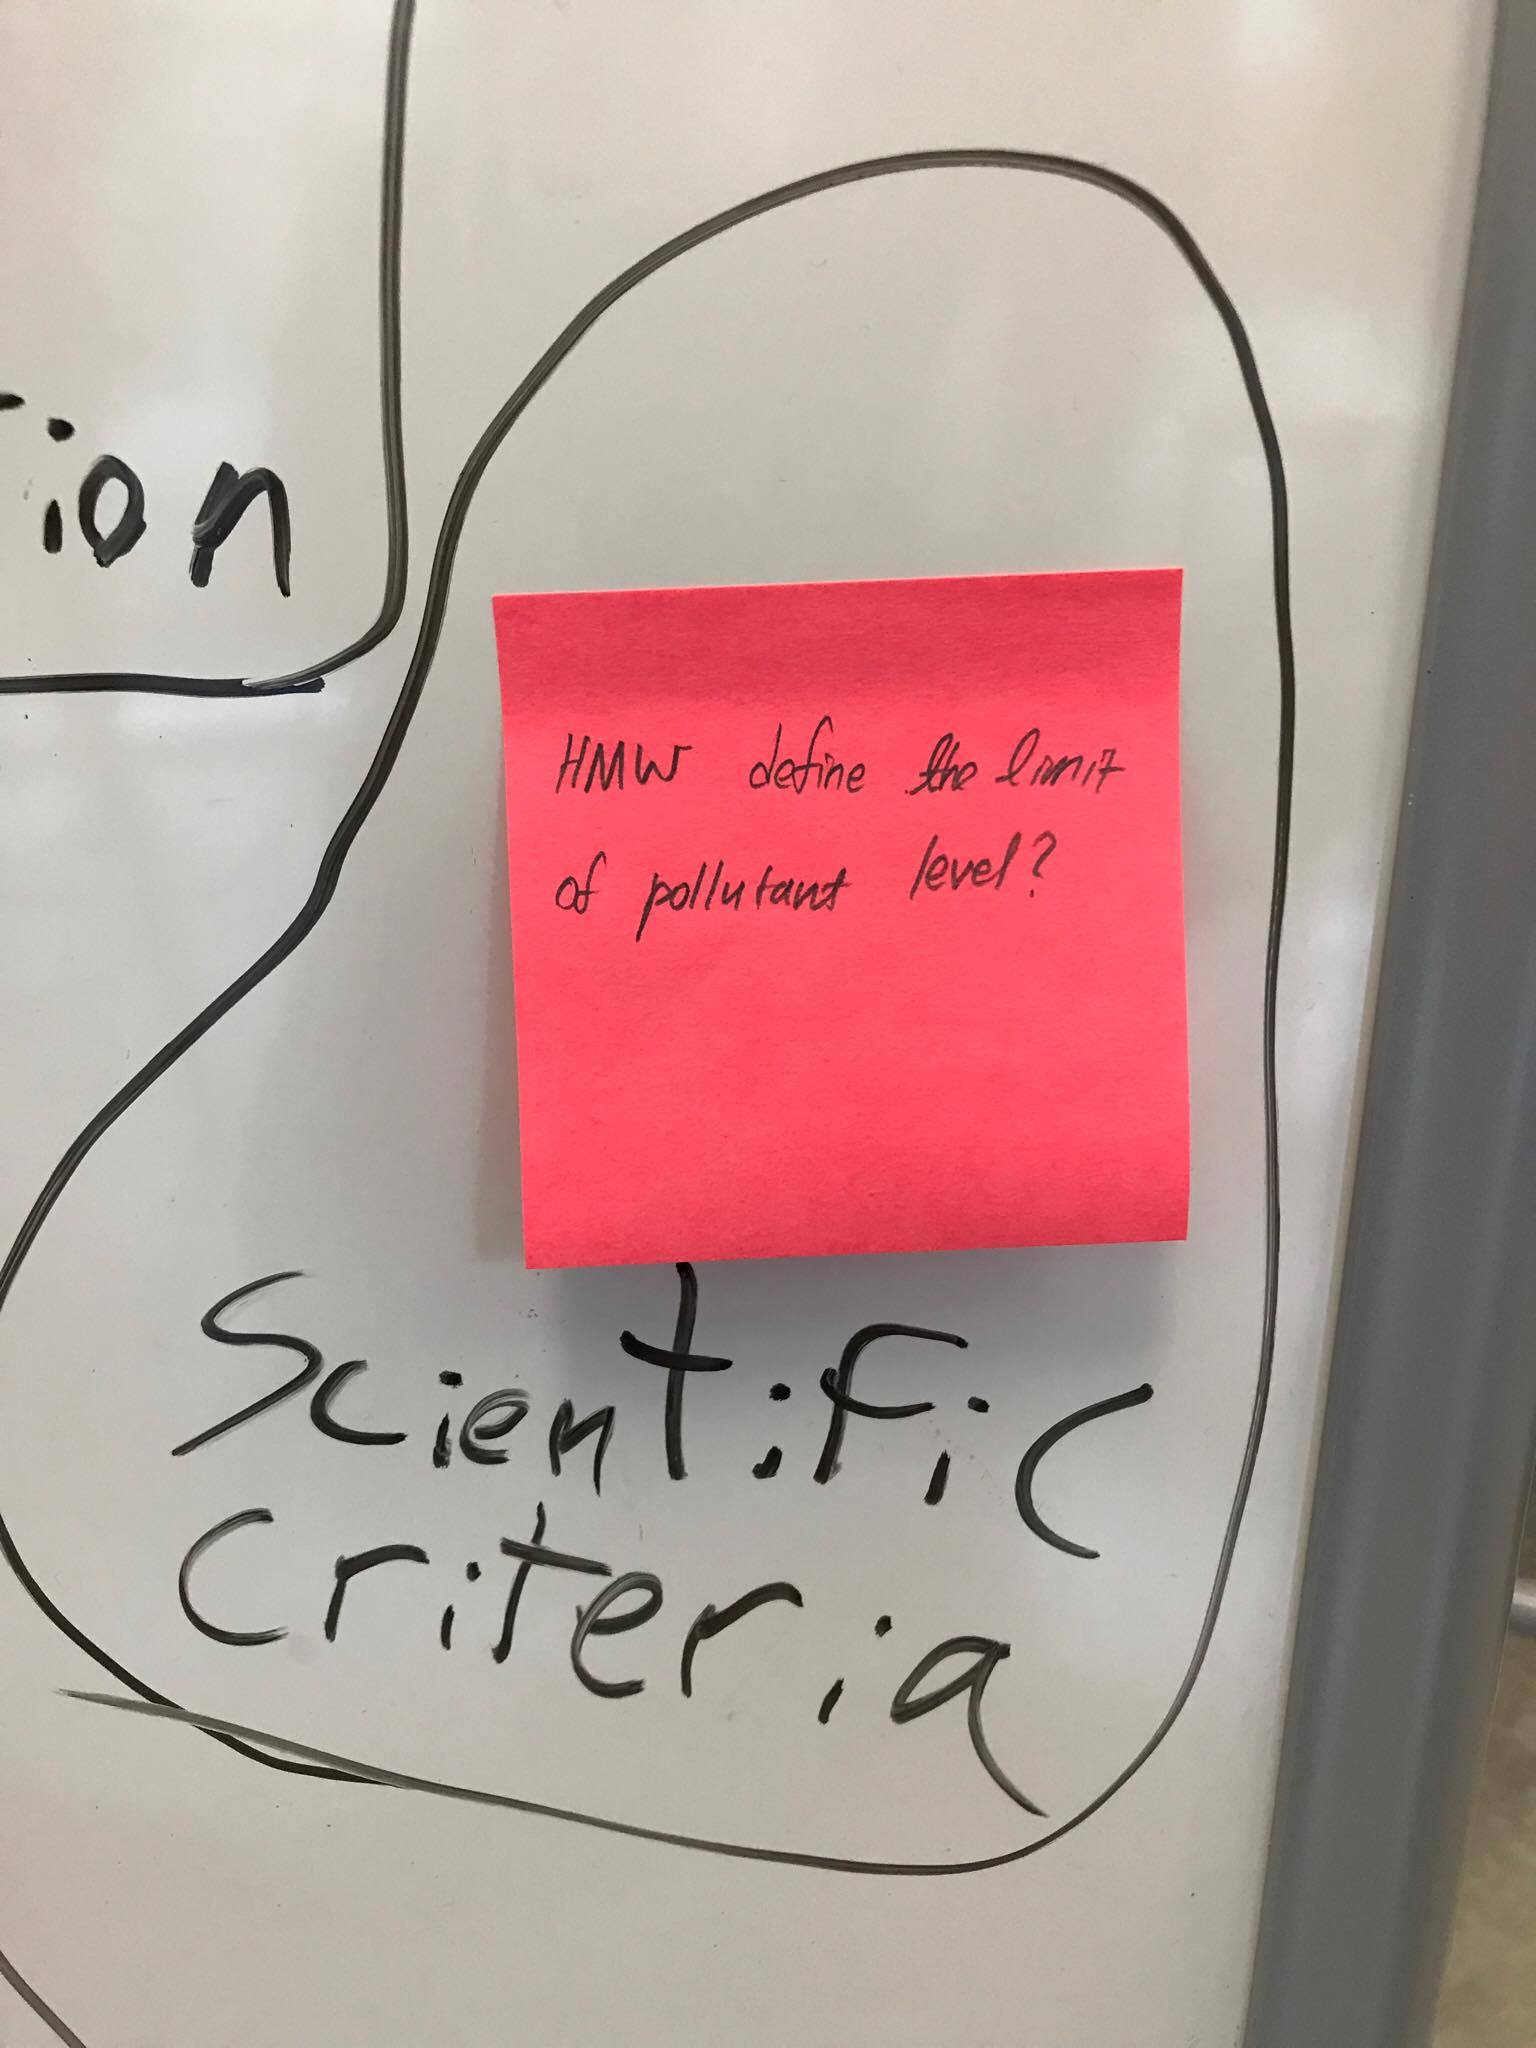 tion
HMW define the limit
of pollutant level?
Scientific
criteria